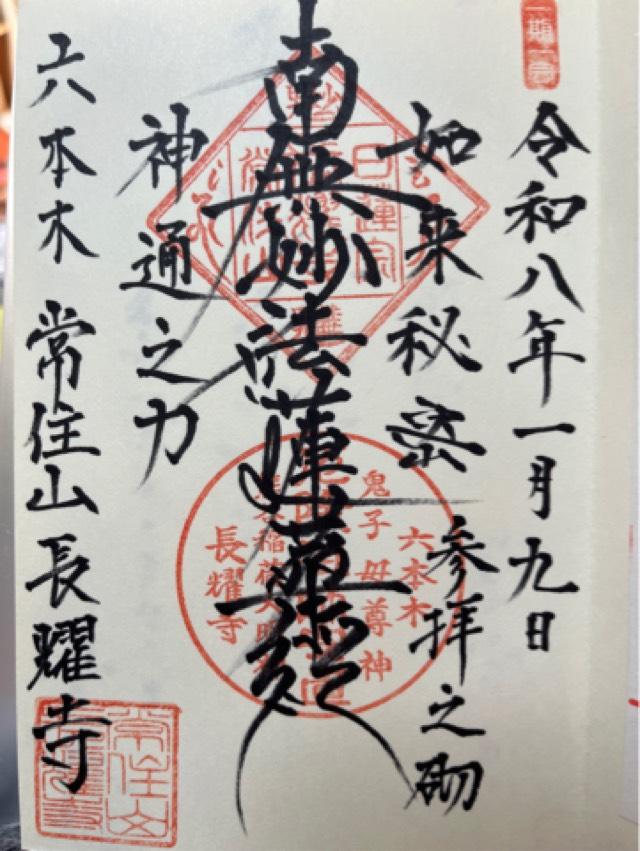 一期一会
令和八年一月九日
如来秘密
参拝之砌
南無妙法蓮華経
神通之力
六本木 常住山 長耀寺
日蓮宗
六本木
鬼子母尊神
長耀寺
常住山
長耀寺